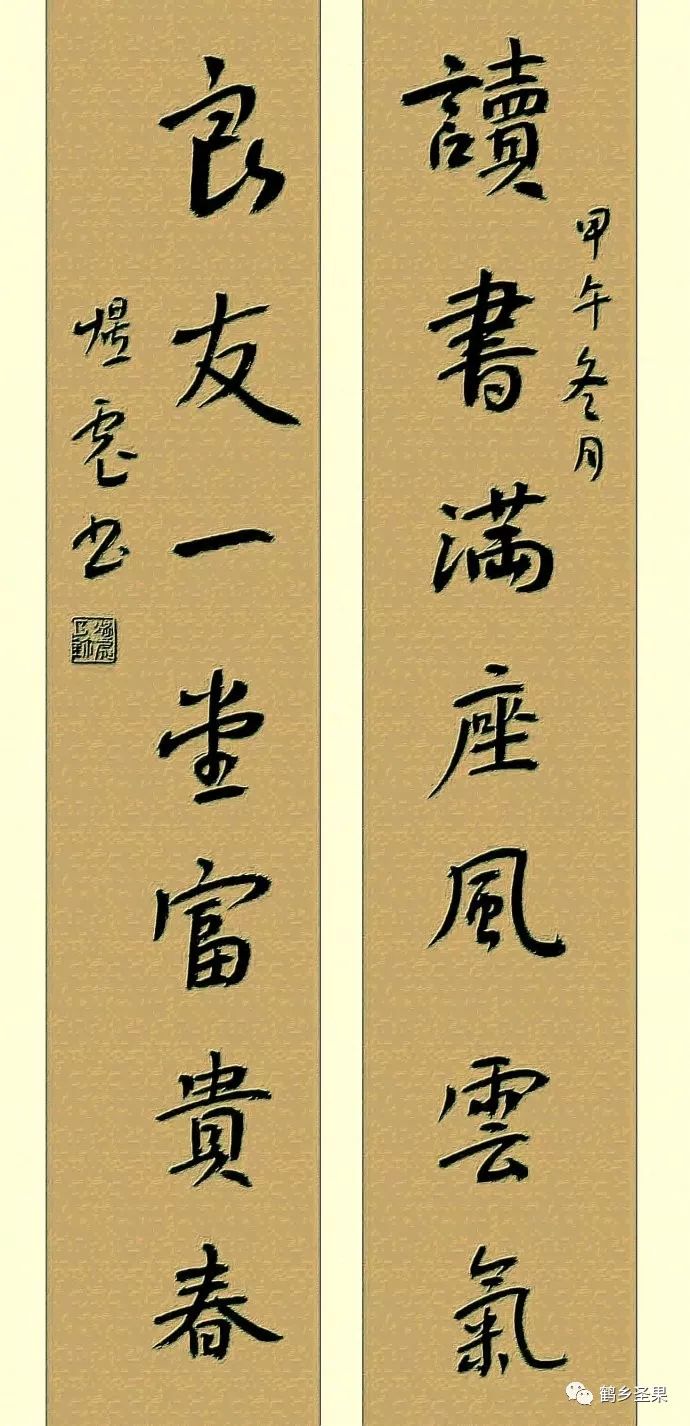 讀書满座風雲氣
甲午冬月
良友一堂富貴春
书
鹤乡圣果